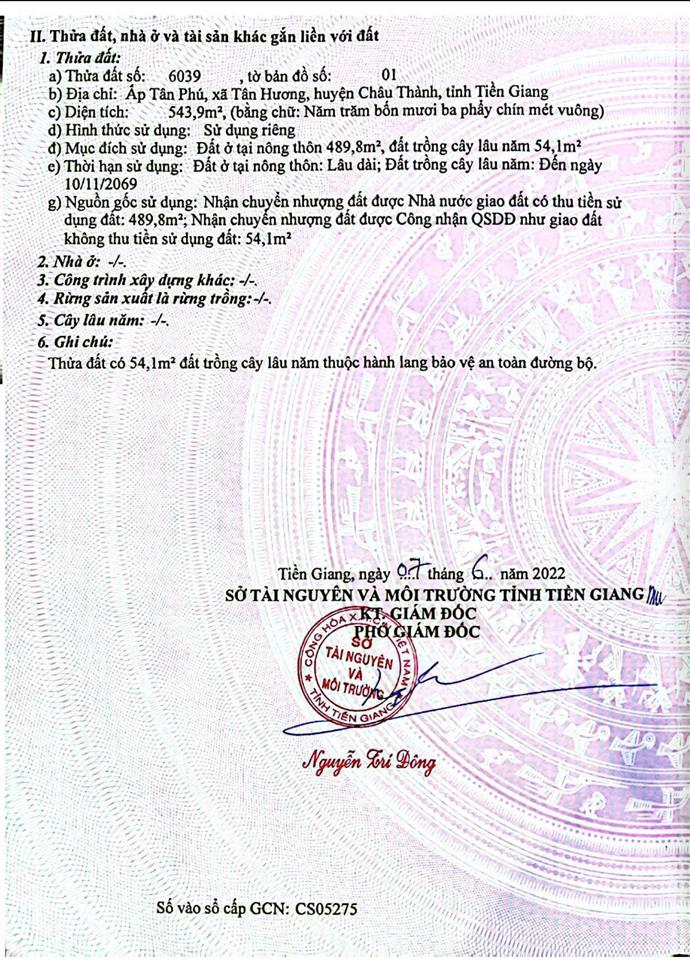 II. Thửa đất, nhà ở và tài sản khác gắn liền với đất
1. Thửa đất:
a) Thửa đất số: 6039 , tờ bản đồ số: 01
b) Địa chỉ: Ấp Tân Phú, xã Tân Hương, huyện Châu Thành, tỉnh Tiền Giang
c) Diện tích: 543,9m², (bằng chữ: Năm trăm bốn mươi ba phẩy chín mét vuông)
d) Hình thức sử dụng: Sử dụng riêng
đ) Mục đích sử dụng: Đất ở tại nông thôn 489,8m², đất trồng cây lâu năm 54,1m²
e) Thời hạn sử dụng: Đất ở tại nông thôn: Lâu dài; Đất trồng cây lâu năm: Đến ngày
10/11/2069
g) Nguồn gốc sử dụng: Nhận chuyển nhượng đất được Nhà nước giao đất có thu tiền sử
dụng đất: 489,8m²; Nhận chuyển nhượng đất được Công nhận QSDĐ như giao đất
không thu tiền sử dụng đất: 54,1m²
2. Nhà ở: -/-.
3. Công trình xây dựng khác: -/-.
4. Rừng sản xuất là rừng trồng:-/-.
5. Cây lâu năm: -/-.
6. Ghi chú:
Thửa đất có 54,1m² đất trồng cây lâu năm thuộc hành lang bảo vệ an toàn đường bộ.
Tiền Giang, ngày 07 tháng 6 năm 2022
SỞ TÀI NGUYÊN VÀ MÔI TRƯỜNG TỈNH TIỀN GIANG
KT. GIÁM ĐỐC
PHÓ GIÁM ĐỐC
CỘNG HÒA X.H.C.N VIỆT NAM
SỞ
TÀI NGUYÊN
VÀ
MÔI TRƯỜNG
TỈNH TIỀN GIANG
Nguyễn Trí Đông
Số vào sổ cấp GCN: CS05275